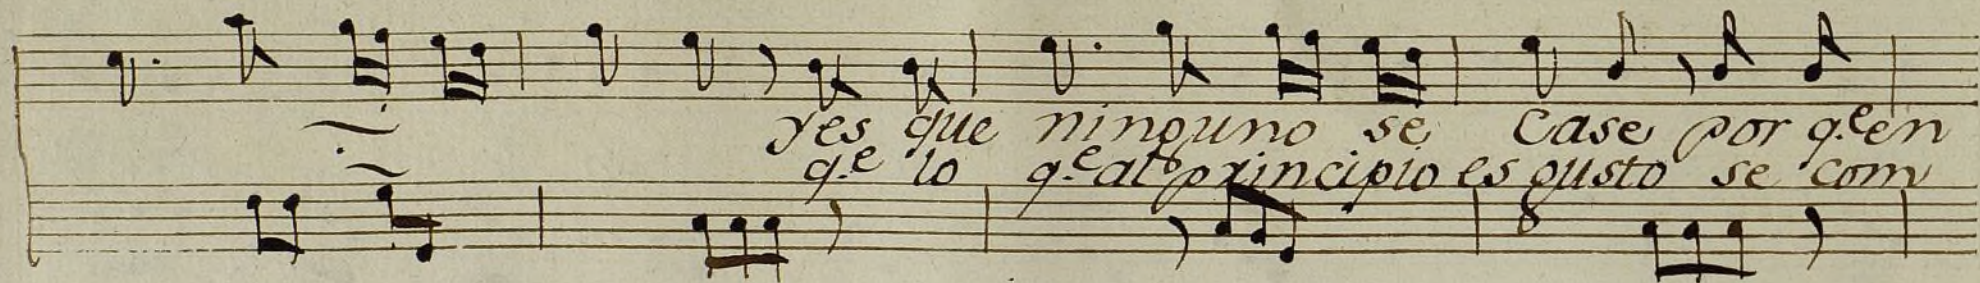 yes que ninguno se case por q.e en
q.e lo q.e al principio es gusto se com